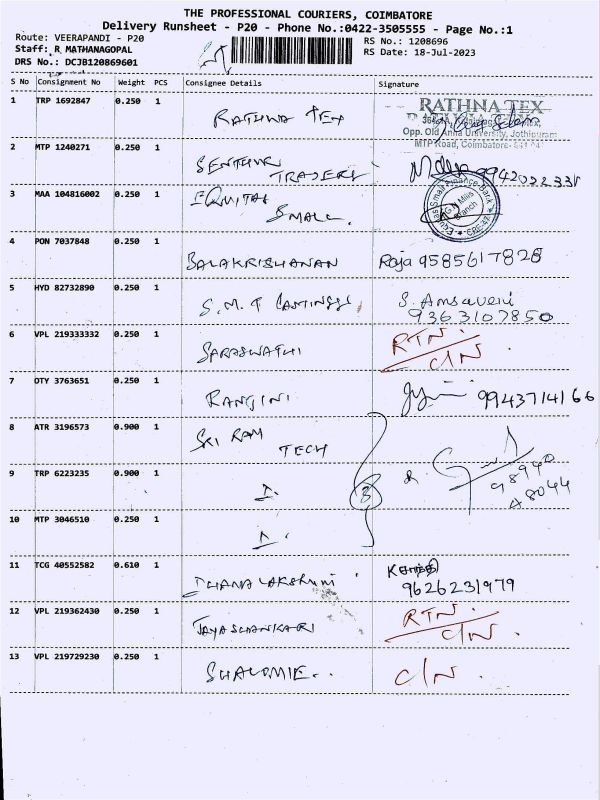 THE PROFESSIONAL COURIERS, COIMBATORE
Delivery Runsheet - P20 - Phone No.:0422-3505555 - Page No.:1
Route: VEERAPANDI - P20
RS No.: 1208696
Staff: R MATHANAGOPAL
RS Date: 18-Jul-2023
DRS No.: DCJB120869601
S No Consignment No Weight PCS Consignee Details Signature
1 TRP 1692847 0.250 1 RATHNA TEX
RATHNA TEX
Opp. Old Anna University, Jothipuram
MTP Road, Coimbatore-
2 MTP 1240271 0.250 1 SENTHUR
TRADERS
3 MAA 104816002 0.250 1 EQUITAS
SMALL.
Equitas Small Finance Bank
Branch
4 PON 7037848 0.250 1 BALAKRISHANAN Raja 9585617828
5 HYD 82732890 0.250 1 S. M. S. Amsaveni
9363107850
6 VPL 219333332 0.250 1 SARASWATHI RTN.
C/N.
7 OTY 3763651 0.250 1 RANJINI 9943714166
8 ATR 3196573 0.900 1 SRI RAM
TECH
9 TRP 6223235 0.900 1 3 98940
48044
10 MTP 3046510 0.250 1
11 TCG 40552582 0.610 1 DHANALAKSHMI
9626231979
12 VPL 219362430 0.250 1 JAYASHANKARI RTN.
C/N.
13 VPL 219729230 0.250 1 SHALOMIE.. C/N.